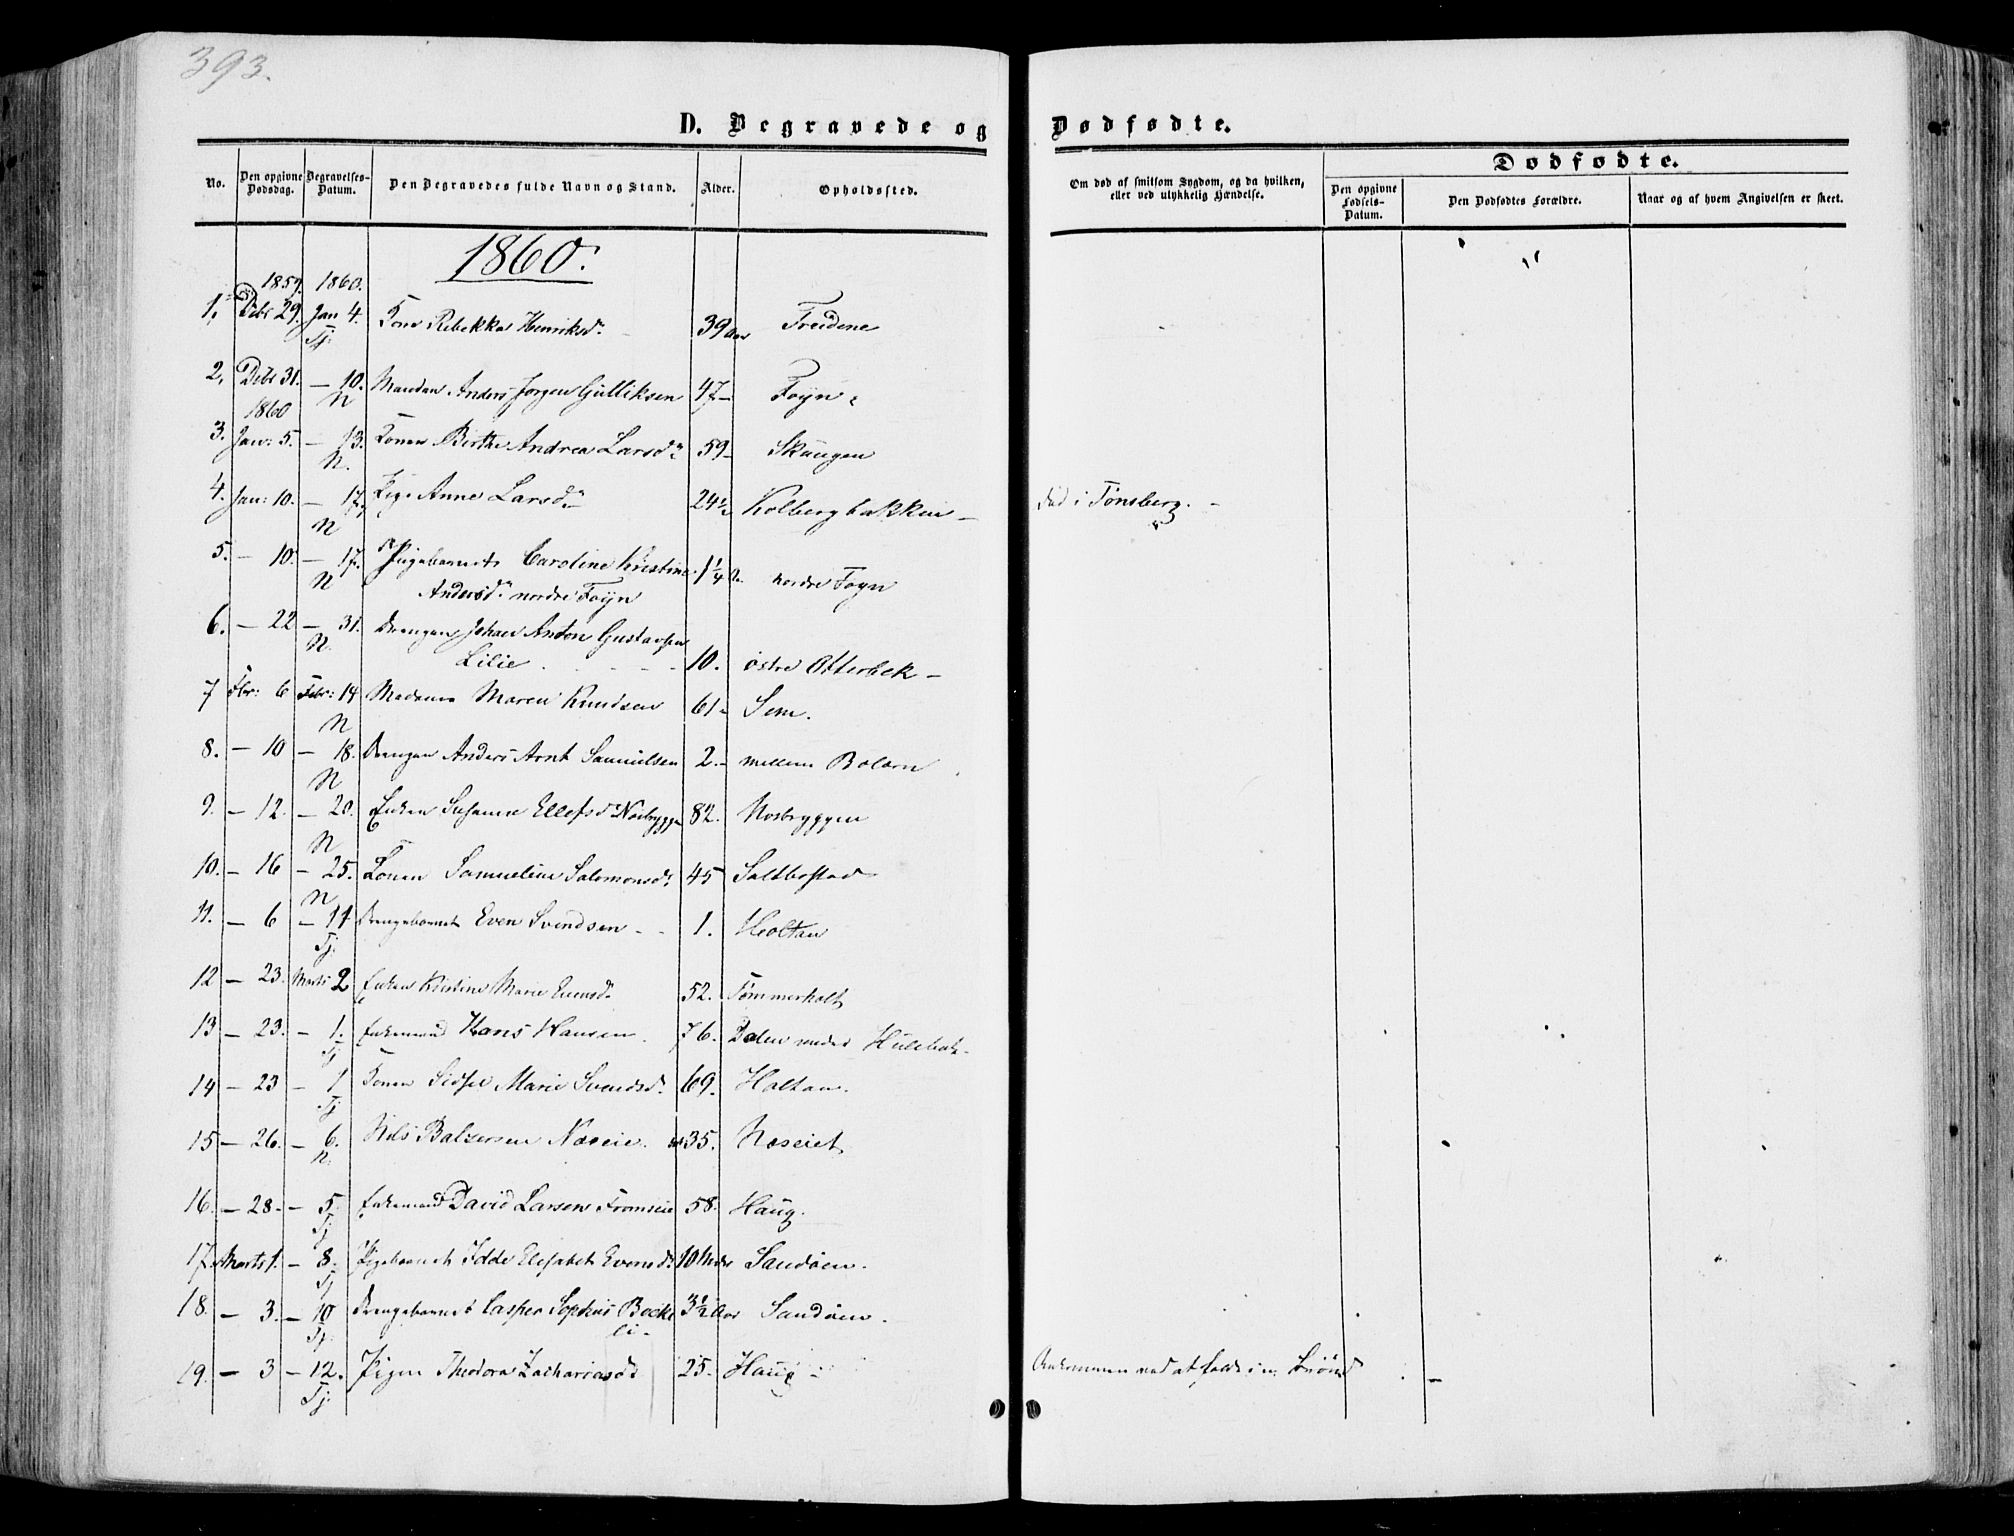 393.
D. Begravede og Dødfødte.
No. Den opgivne Dødsdag. Begravelses-Datum. Den Begravedes fulde Navn og Stand. Alder. Opholdssted. Om død af smitsom Sygdom, og da hvilken, eller ved ulykkelig Hændelse.
Dødfødte.
Den opgivne Fødsels-Datum. Den Dødfødtes Forældre. Naar og af hvem Angivelsen er skeet.
1860.
1859. 1860.
1. Debr 29. Jan 4. Kone Rebekka Henriksd. 39 Aar
Tj:
2. Debr 31. — 10. Manden Anders Jørgen Gulliksen 47 — Føyn
N
1860
3. Jan: 5. — 13. Konen Birthe Andrea Larsd. 59 — Skaugen
N.
4. Jan: 10. — 17. Pige Anne Larsd. 24½ Kolbergbakken — død i Tønsberg. —
N
5. — 10. — 17. Pigebarnet Caroline Kristine 1¼ nordre Foyn
N Andersd. nordre Føyn
6. — 22 — 31. Drengen Johan Anton Gustavsen
N. Lilie 10. østre Otterbek —
7 Fbr: 6 Febr: 14 Madame Maren Knudsen 61 — Sem.
N
8. — 10 — 18. Drengen Anders Arnt Samuelsen 2. — mellem Bolærn
N
9. — 12. — 20. Enken Susanne Ellefsd. Nøsbryggen 82. Nosbryggen
N
10. — 16 — 25. Konen Samueline Salomonsd. 45 Saltbostad
N
11. — 6 — 11 Drengebarnet Even Svendsen 1. Holtan
Tj.
12 — 23. Marts 2 Enken Kirstine Marie Evensd. 52. Tømmerholt
13 — 23. — 1. Enkemand Hans Hansen 76. Dalen under
Tj
14 — 23 — 1 Konen Sidsel Marie Svendsd. 69. Holtan.
Tj
15 — 26. — 6. Nils Balzersen Næseie. 35. Næseiet
N.
16. — 28. — 5. Enkemand David Larsen 58. Haug.
Tj
17. Marts 1. — 8. Pigebarnet Idde Elisabet Evensd. 10 Mdr Sandøen.
Tj
18. — 3. — 10 Drengebarnet Casper Sophus Bocke 3½ Aar Sandøen.
Tj. li —
19. — 3 — 12. Pigen Theodora Zachariasd. 25. Haug Omkommen ved at falde i en Brønd —
Tj.